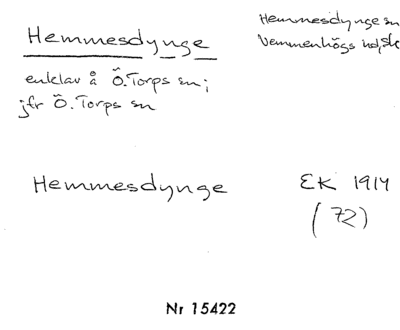 Hemmesdynge
Hemmesdynge sn
Vemmenhögs hd, Sk
enklav å Ö. Torps sn;
jfr Ö. Torps sn
Hemmesdynge
EK 1914
(72)
Nr 15422